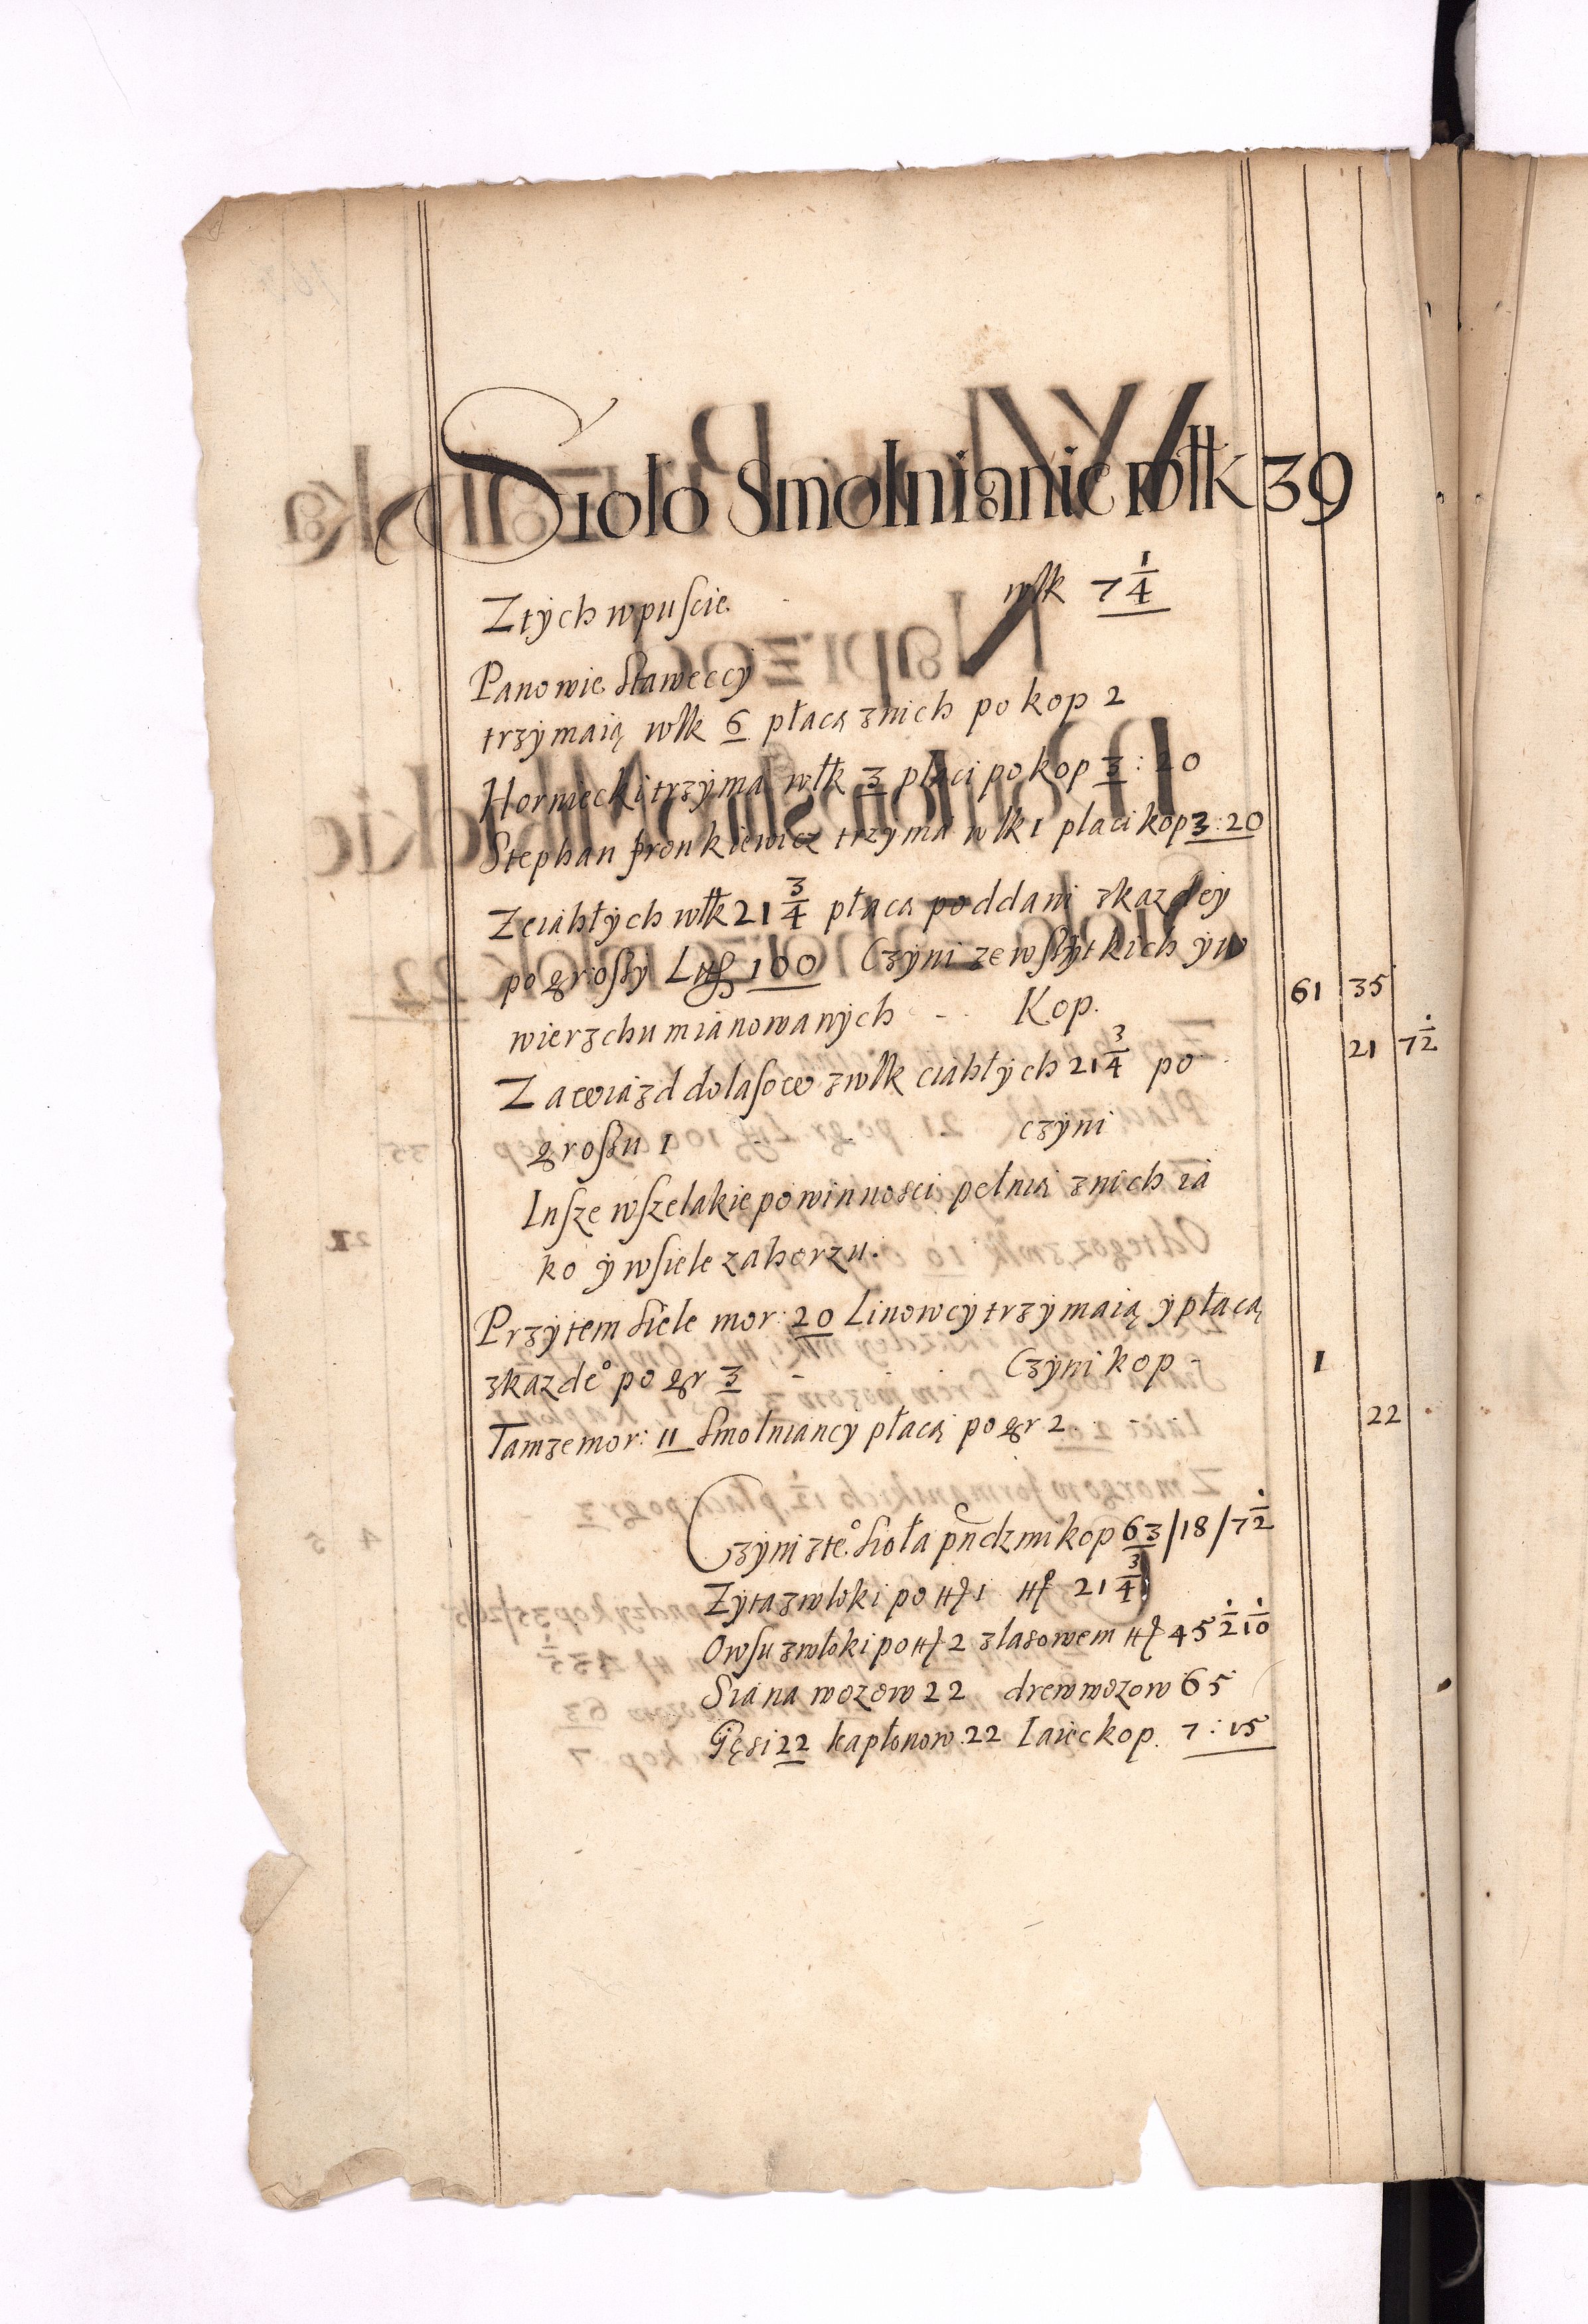 Sioło Smolnianie włk 39
Z tych w puscie włk 7 1/4
Panowie Sławeccy
trzymaią włk 6 płacą z nich po kop 2
Horniecki trzyma włk 3 płaci po kop 3 : 20
Stephan Pronkiewicz trzyma włk 1 płaci kop 3 : 20
Z ciahłych włk 21 3/4 płacą poddani z kazdey
po groszy 100 Czyni ze wszytkich y w
wierzchu mianowanych Kop. 61 35
Za wiazd do lasow z włk ciahłych 21 3/4 po 21 7 1/2
groszu 1 czyni
Insze wszelakie powinnosci pełnią z nich ia
ko y w siele zahorzu.
Przy tem siele mor: 20 Linowcy trzymaią y płacą
z kazdeº po gr 3 Czyni kop 1
Tamze mor: 11 Smolniancy płacą po gr 2 22
Czyni z teº sioła pndzmi kop 63/18/7 1/2
Zyta z włoki po 1 21 3/4
Owsu z włoki po 2 z lasowem 45 1/2 1/10
Siana wozow 22 drew wozow 65
Gęsi 22 kapłonow 22 Iaiec kop. 7 : 15